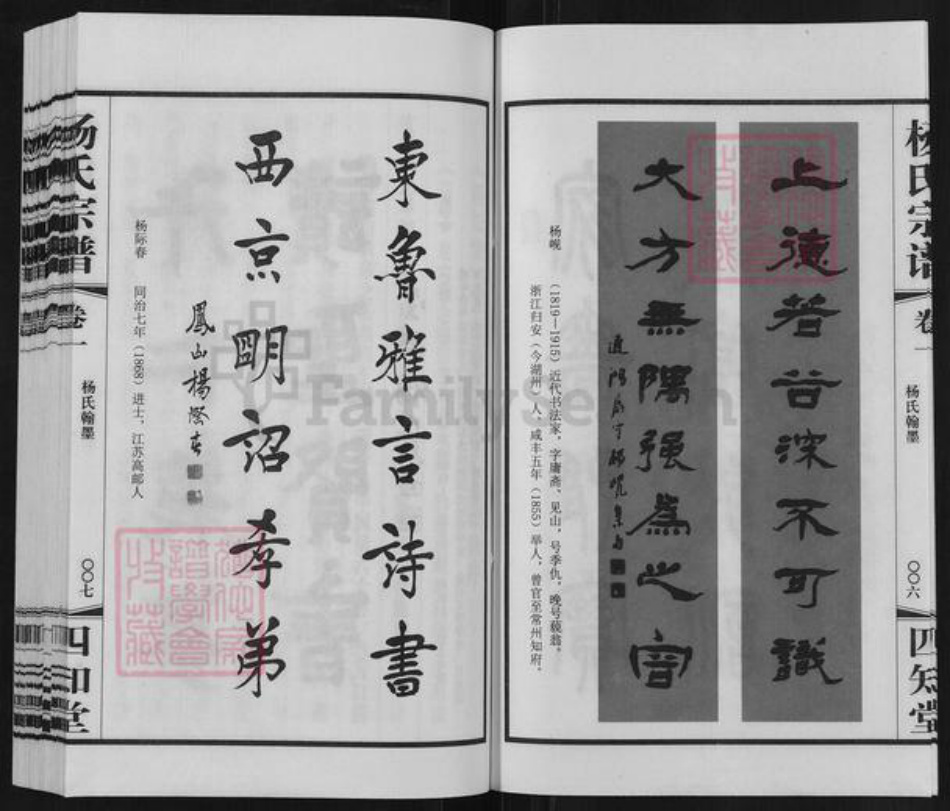 杨氏宗谱
卷一
杨氏翰墨
〇〇六
四知堂
上德若谷深不可識
大方無隅强為之容
杨岘
(1819—1915)近代书法家,字庸斋、见山,号季仇,晚号藐翁。
浙江归安(今湖州)人、咸丰五年(1855)举人,曾官至常州知府。
東魯雅言詩書
西京明詔孝弟
鳳山楊際春
杨际春 同治七年(1868)进士,江苏高邮人
杨氏宗谱
卷一
杨氏翰墨
〇〇七
四知堂
FamilySearch
譜學會
收藏
收藏